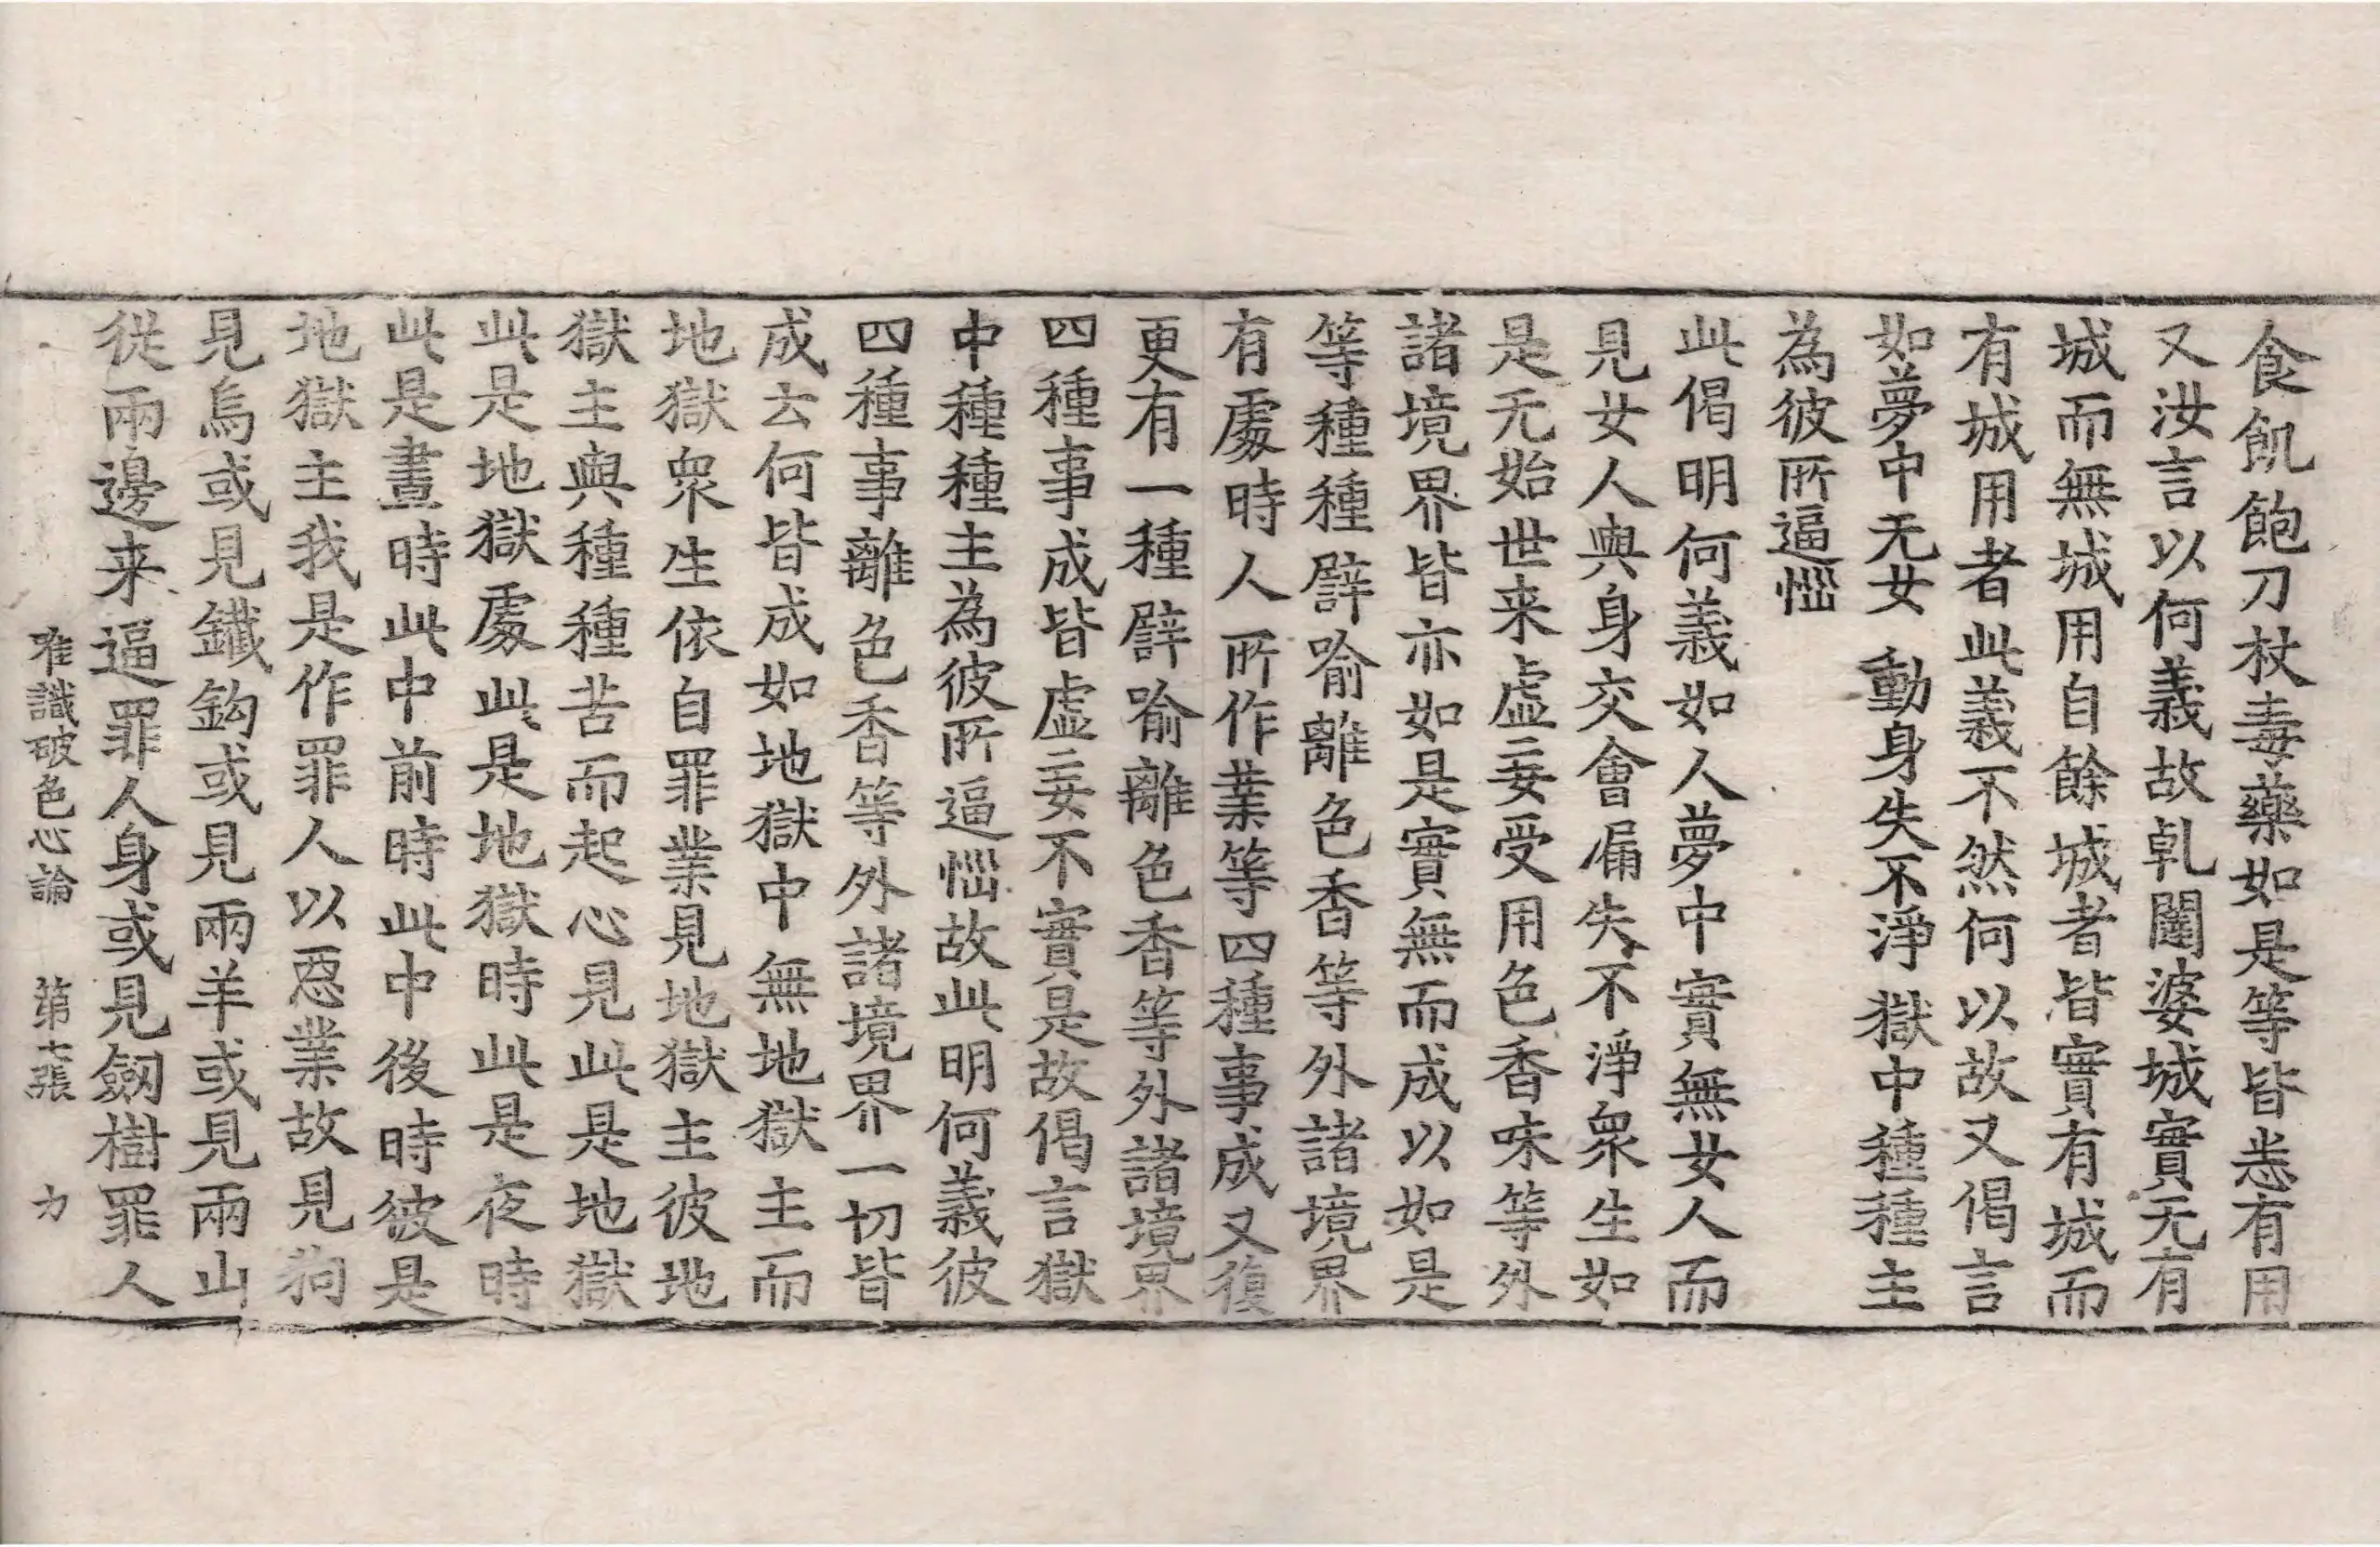 食飢飽刀杖毒藥如是等皆悉有用
又汝言以何義故乹闥婆城實无有
城而無城用自餘城者皆實有城而
有城用者此義不然何以故又偈言
如夢中无女　動身失不淨　獄中種種主
為彼所逼惱
此偈明何義如人夢中實無女人而
見女人與身交會漏失不淨衆生如
是无始世来虛妄受用色香味等外
諸境界皆亦如是實無而成以如是
等種種譬喻離色香等外諸境界
有處時人所作業等四種事成又復
更有一種譬喻離色香等外諸境界
四種事成皆虛妄不實是故偈言獄
中種種主為彼所逼惱故此明何義彼
四種事離色香等外諸境界一切皆
成云何皆成如地獄中無地獄主而
地獄衆生依自罪業見地獄主彼地
獄主與種種苦而起心見此是地獄
此是地獄處此是地獄時此是夜時
此是晝時此中前時此中後時彼是
地獄主我是作罪人以惡業故見狗
見烏或見鐵鈎或見兩羊或見兩山
從兩邊来逼罪人身或見劒樹罪人
唯識破色心論　第七張　力